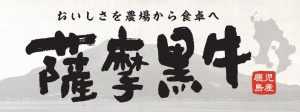 おいしさを農場から食卓へ
薩摩黒牛
鹿児島産